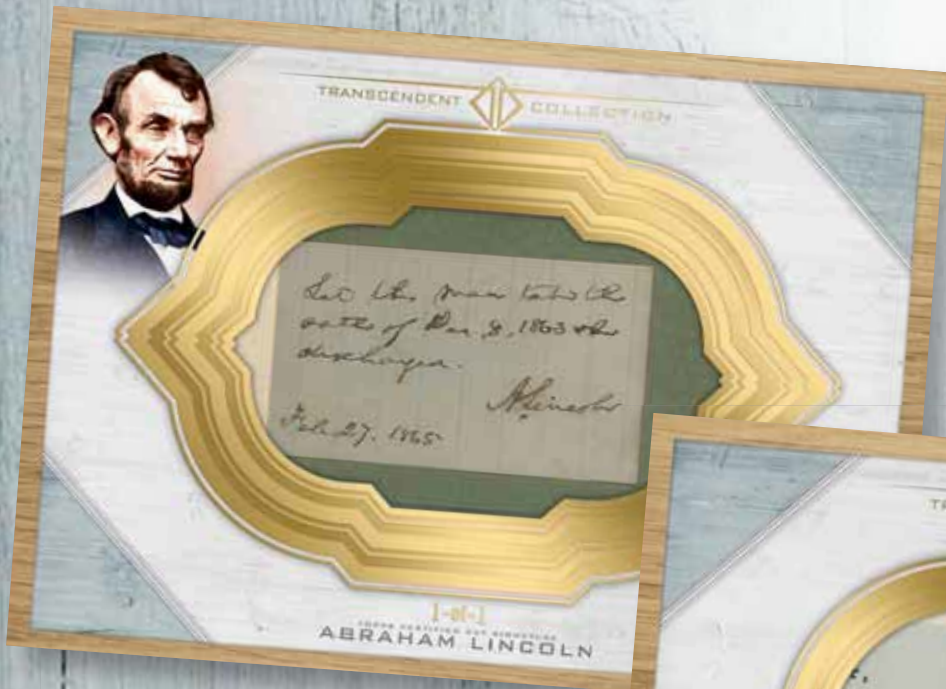 TRANSCENDENT COLLECTION
Let this man take the
oath of Dec. 8, 1863 & be
discharged.
A. Lincoln
Feb. 27. 1865
1-of-1
TOPPS CERTIFIED CUT SIGNATURE
ABRAHAM LINCOLN